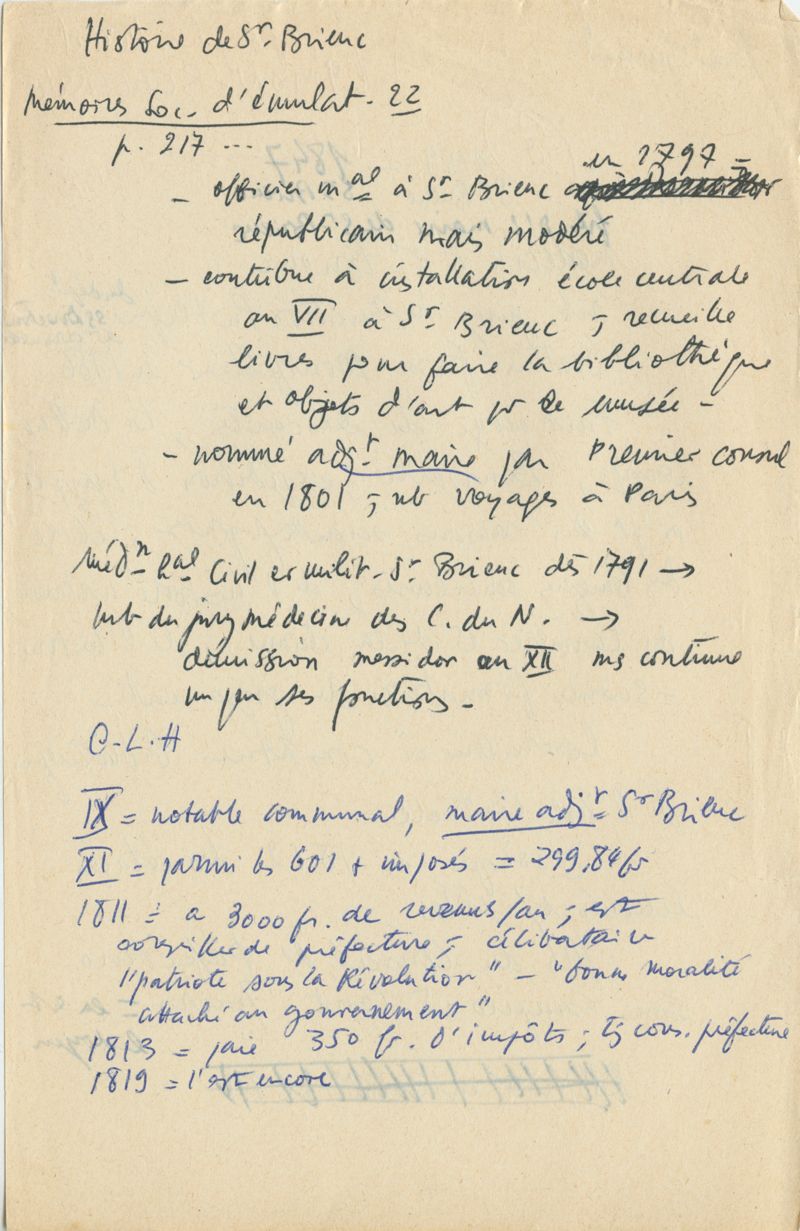 Histoire de St Brieuc
Mémoires Soc. d'émulat. 22
p. 217 ...
en 1797 -
- officier mal à St Brieuc
républicain mais modéré
- contribue à installation école centrale
an VII à St Brieuc ; recueille
livres pour faire la bibliothèque
et objets d'art pr le musée -
- nommé adjt maire par Premier consul
en 1801 ; nb voyages à Paris
Médn hal civil et milit. St Brieuc dès 1791 →
mb du jury médecine des C. du N. →
démission messidor an XII ms continue
un peu ses fonctions -
C-L-H
IX = notable communal, maire adjt St Brieuc
XI = parmi les 601 + imposés = 299,84 fr
1811 = a 3000 fr. de revenus/an ; est
conseiller de préfecture ; célibataire
"patriote sous la Révolution" - "bonne moralité
attaché au gouvernement"
1813 = paie 350 fr. d'impôts ; tj cons. préfecture
1819 = l'est encore